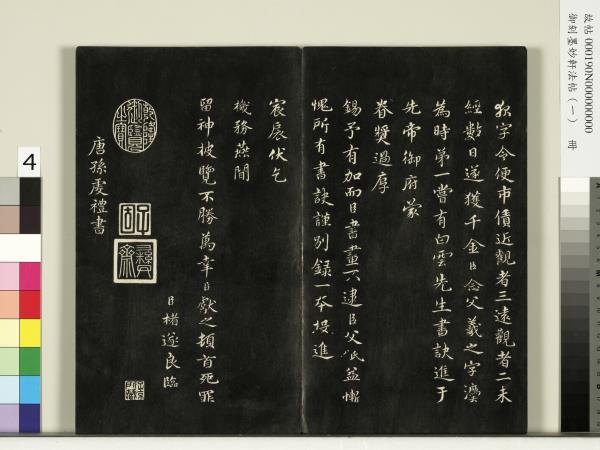 數字令便市債近觀者三遠觀者二未
經數日遂獲千金臣念父羲之字灋
為時第一嘗有白雲先生書訣進于
先帝御府蒙
眷獎過厚
錫予有加而臣書畫不逮臣父祇益慚
愧所有書訣謹別錄一本投進
宸扆伏乞
機務燕閒
留神披覽不勝萬幸臣獻之頓首死罪
臣褚遂良臨
乾隆御覽之寶
唐孫虔禮書
故帖 000190N000000000
御刻墨妙軒法帖（一） 冊
4